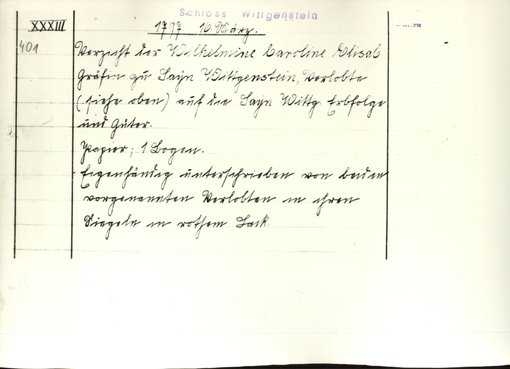 Schloss Wittgenstein
XXXIII
1797 10. März.
401
Verzicht der Wilhelmine Caroline Elisab.
Gräfin zu Sayn Wittgenstein, Verlobte
(siehe oben) auf die Sayn Wittg. Erbfolge
und Güter.
Papier, 1 Bogen.
Eigenhändig unterschrieben von beiden
vorgenannten Verlobten m ihren
Siegeln in rothem Lack